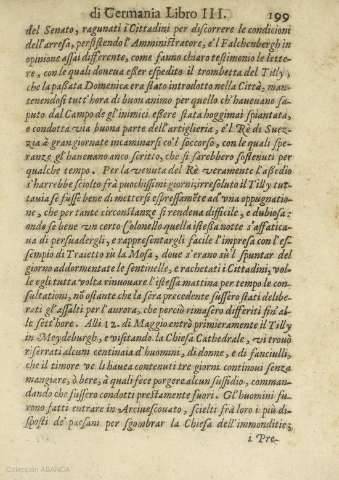 di Germania Libro III. 199
del Senato, ragunati i Cittadini per discorrere le condicioni
dell'arresa, persistendo l'Amministratore, e'l Falchenbergh in
opinione assai differente, come fanno chiaro testimonio le lette-
re, con le quali doueua esser espedito il trombetta del Tilly,
che la passata Domenica era stato introdotto nella Città, man-
tenendosi tutt'hora di buon animo per quello ch'haueuano sa-
puto dal Campo de gl'inimici essere stata hoggimai spiantata,
e condotta via buona parte dell'artiglieria, e'l Rè di Suez-
zia à gran giornate incaminarsi co'l soccorso, con le quali spe-
ranze gl'haueuano anco scritto, che si sarebbero sostenuti per
qualche tempo. Per la venuta del Rè veramente l'assedio
s'harrebbe sciolto frà pochissimi giorni; irresoluto il Tilly tut-
tauia se fusse bene di mettersi espressamēte ad vna oppugnatio-
ne, che per tante circonstanze si rendeua difficile, e dubiosa:
onde se bene vn certo Colonello quella istessa notte s'affatica-
ua di persuadergli, e rappresentargli facile l'impresa con l'es-
sempio di Traietto sù la Mosa, doue s'erano sù'l spuntar del
giorno addormentate le sentinelle, e rachetati i Cittadini, vol-
le egli tutta volta rinuouare l'istessa mattina per tempo le con-
sultationi, nō ostante che la sera precedente fussero stati delibe-
rati gl'assalti per l'aurora, che perciò rimasero differiti fin'al-
le sett'hore. Alli 12. di Maggio entrò primieramente il Tilly
in Meydeburgh, e visitando la Chiesa Cathedrale, vi trouò
riserrati alcuni centinaia d'huomini, di donne, e di fanciulli,
che il timore ve li haueua contenuti tre giorni continoui senza
mangiare, ò bere, à quali fece porgere alcun sussidio, comman-
dando che fussero condotti prestamente fuori. Gl'huomini fu-
rono fatti entrare in Arciuescouato, scielti frà loro i più di-
sposti de' paesani per sgombrar la Chiesa dell'immonditie;
i Pre-
Colección ABANCA